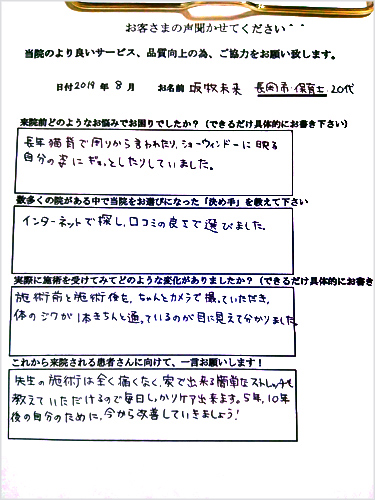 お客さまの声聞かせてください^^
当院のより良いサービス、品質向上の為、ご協力をお願い致します。
日付2019年8月 お名前 坂牧未来 長岡市・保育士・20代
来院前どのようなお悩みでお困りでしたか？（できるだけ具体的にお書き下さい）
長年猫背で周りから言われたり、ショーウィンドーに映る
自分の姿にギョッとしたりしていました。
数多くの院がある中で当院をお選びになった「決め手」を教えて下さい
インターネットで探し、口コミの良さで選びました。
実際に施術を受けてみてどのような変化がありましたか？（できるだけ具体的にお書き
施術前と施術後を、ちゃんとカメラで撮っていただき、
体のジクが1本きちんと通っているのが目に見えて分かりました。
これから来院される患者さんに向けて、一言お願いします！
先生の施術は全く痛くなく、家で出来る簡単なストレッチも
教えていただけるので毎日しっかりケア出来ます。5年、10年
後の自分のために、今から改善していきましょう！